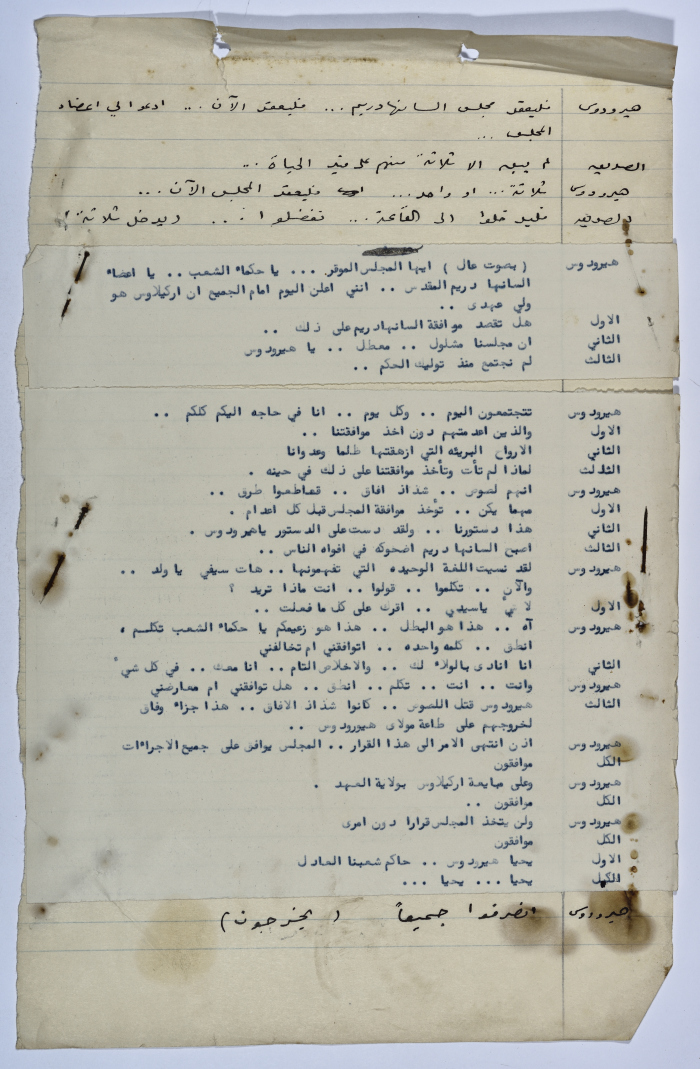 هيرودوس فليعقد مجلس السانهادريم ... فليعقد الآن ... ادعوا لي اعضاء
المجلس ...
الصديقه لم يبق الا ثلاثة منهم على قيد الحياة ...
هيرودوس ثلاثة ... او واحد ... فليعقد المجلس الآن ...
الصديقه فليدخلوا الى القاعة ... تفضلوا ... ويدخل ثلاثة
هيرودوس ( بصوت عال ) ايها المجلس الموقر ... يا حكماء الشعب .. يا اعضاء
السانهادريم المقدس .. انني اعلن اليوم امام الجميع ان اركيلاوس هو
ولي عهدى ..
الاول هل تقصد موافقة السانهادريم على ذلك ..
الثاني ان مجلسنا مشلول .. معطل .. يا هيرودوس
الثالث لم نجتمع منذ توليك الحكم ..
هيرودوس تتجتمعون اليوم .. وكل يوم .. انا في حاجه اليكم كلكم ..
الاول والذين اعدمتهم دون اخذ موافقتنا ..
الثاني الارواح البريئه التي ازهقتها ظلما وعدوانا
الثالث لماذا لم تأت وتأخذ موافقتنا على ذلك في حينه .
هيرودوس انهم لصوص .. شذاذ افاق .. قطاطعوا طرق ..
الاول مهما يكن .. تؤخذ موافقة المجلس قبل كل اعدام .
الثاني هذا دستورنا .. ولقد دست على الدستور ياهيرودوس .
الثالث اصبح السانهادريم اضحوكه في افواه الناس ..
هيرودوس لقد نسيت اللغة الوحيده التي تفهمونها .. هات سيفي يا ولد ..
والآن .. تكلموا .. قولوا .. انت ماذا تريد ؟
الاول لا شيء ياسيدي .. اقرك على كل ما فعلت ..
هيرودوس آه .. هذا هو البطل .. هذا هو زعيمكم يا حكماء الشعب تكلم ،
انطق .. كلمه واحده .. اتوافقني ام تخالفني
الثاني انا انادى بالولاء لك .. والاخلاص التام .. انا معك .. في كل شيء
هيرودوس وانت .. انت .. تكلم .. انطق .. هل توافقني ام معارضني
الثالث هيرودوس قتل اللصوص .. كانوا شذاذ الافاق .. هذا جزاء وفاق
لخروجهم على طاعة مولاى هيورودوس ..
هيرودوس اذن انتهى الامر الى هذا القرار .. المجلس يوافق على جميع الاجراءات
الكل موافقون
هيرودوس وعلى مبايعة اركيلاوس بولاية العهد .
الكل موافقون ..
هيرودوس ولن يتخذ المجلس قرارا دون امرى
الكل موافقون
الاول يحيا هيرودوس .. حاكم شعبنا العادل
الكل يحيا ... يحيا ...
هيرودوس انصرفوا جميعاً ( يخرجون )